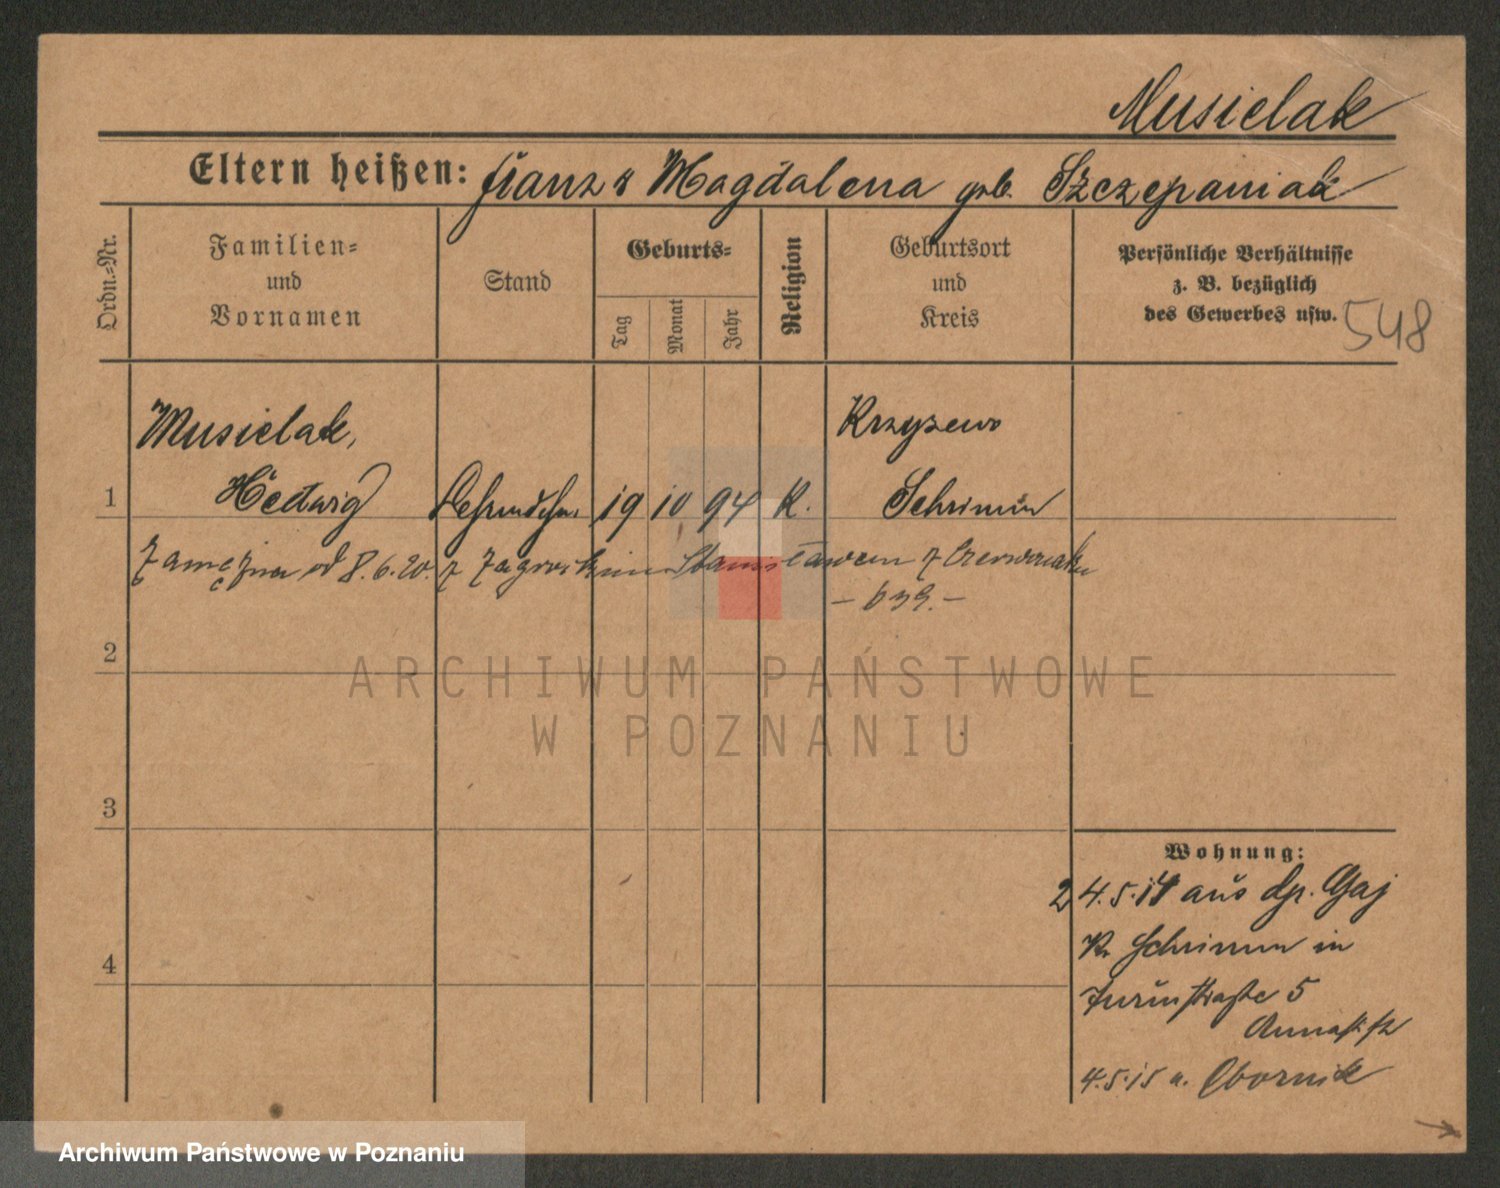 Musielak
Eltern heißen: Franz u Magdalena geb. Szczepaniak
Ordn.=Nr.
Familien=
und
Vornamen
Stand
Geburts=
Tag
Monat
Jahr
Religion
Geburtsort
und
Kreis
Persönliche Verhältnisse
z. B. bezüglich
des Gewerbes usw.
548
Musielak,
Hedwig
1
19 10 94 K.
Krzyzewo
Schrimm
Zamężna od 8.6.20. z Stanisławem z
2
3
4
Wohnung:
4.5.14 aus Gaj
Kr Schrimm in
Turmstraße 5
Annastift
4.5.15 n. Obornik
ARCHIWUM PAŃSTWOWE
W POZNANIU
Archiwum Państwowe w Poznaniu